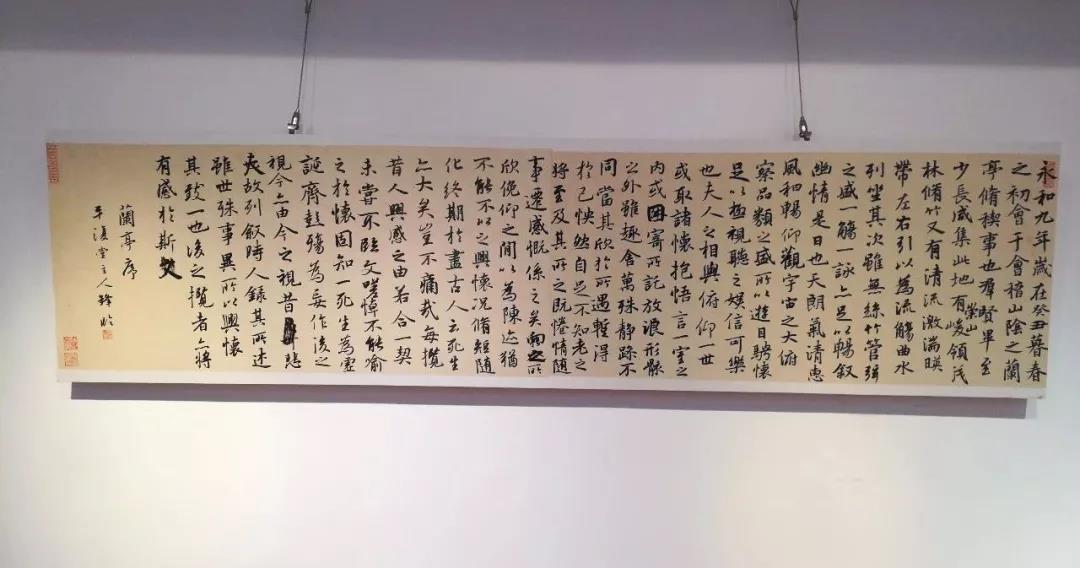 永和九年歲在癸丑暮春
之初會于會稽山陰之蘭
亭脩稧事也羣賢畢至
少長咸集此地有崇山峻領茂
林脩竹又有清流激湍暎
帶左右引以為流觴曲水
列坐其次雖無絲竹管弦
之盛一觴一詠亦足以暢叙
幽情是日也天朗氣清惠
風和暢仰觀宇宙之大俯
察品類之盛所以遊目騁懷
足以極視聽之娛信可樂
也夫人之相與俯仰一世
或取諸懷抱悟言一室之
內或因寄所託放浪形骸
之外雖趣舍萬殊靜躁不
同當其欣於所遇蹔得
於己怏然自足不知老之
將至及其所之既惓情隨
事遷感慨係之矣向之所
欣俛仰之間以為陳迹猶
不能不以之興懷況脩短隨
化終期於盡古人云死生
亦大矣豈不痛哉每攬
昔人興感之由若合一契
未嘗不臨文嗟悼不能喻
之於懷固知一死生為虛
誕齊彭殤為妄作後之
視今亦由今之視昔悲
夫故列叙時人錄其所述
雖世殊事異所以興懷
其致一也後之攬者亦將
有感於斯文
蘭亭序
平復堂主人